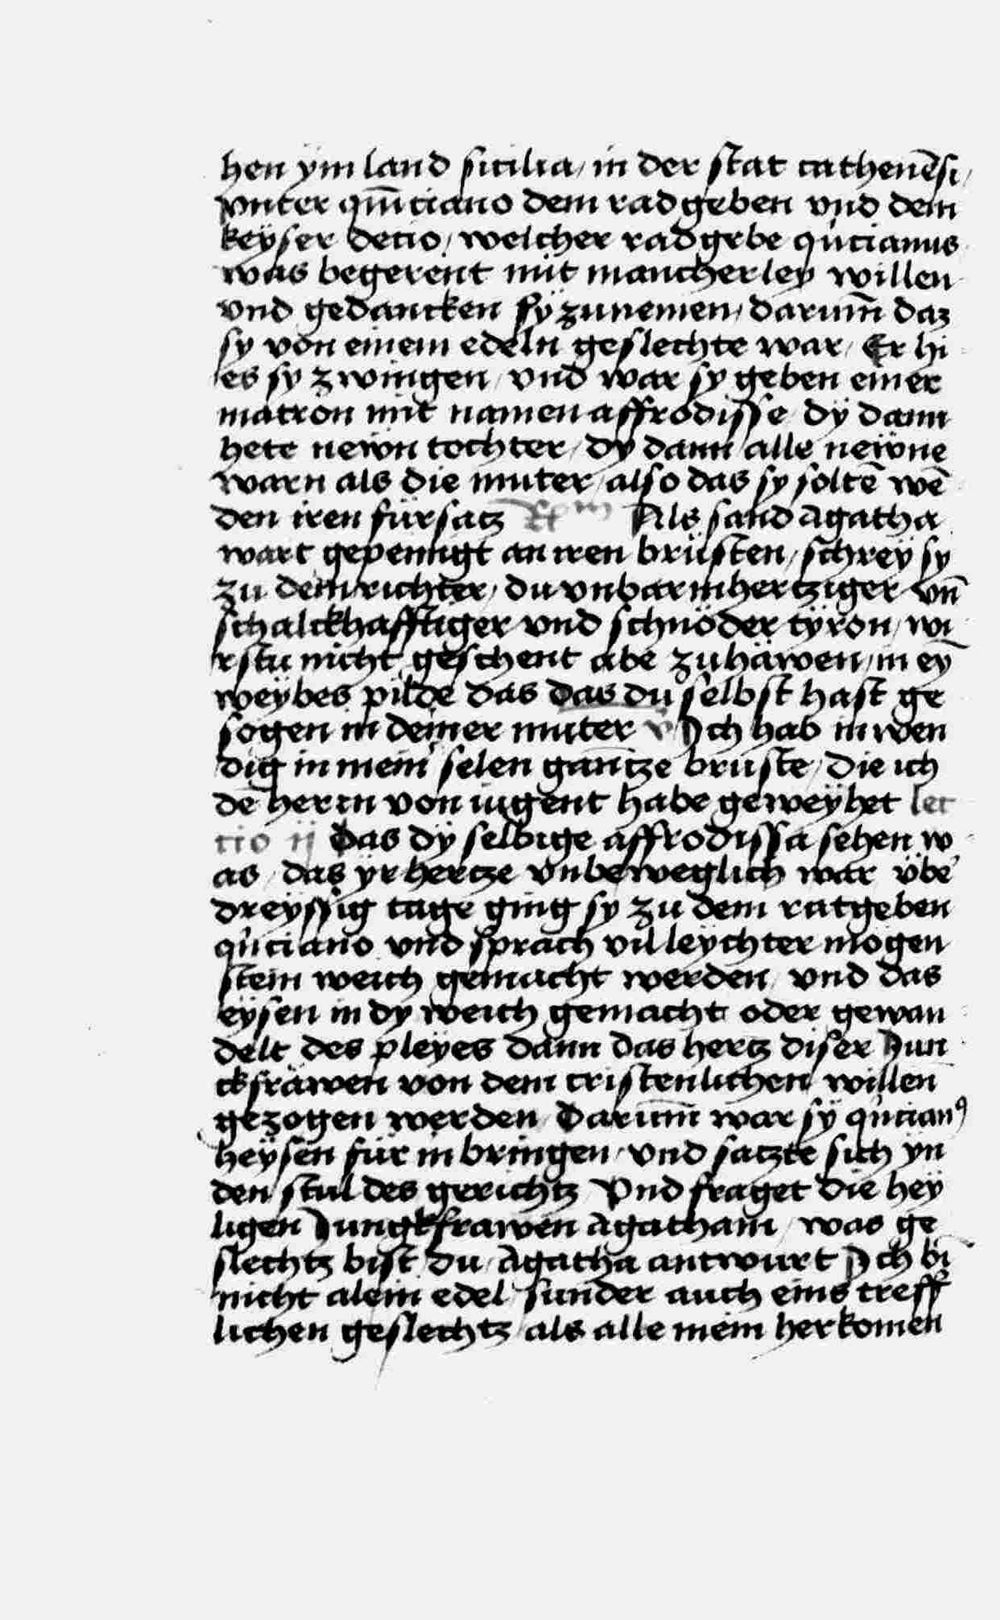 hen ÿm land sicilia, in der stat cathenēsi,
vnter qm̄ciano dem radgeben vnd dem
keÿser decio, welcher radgebe qūcianus
was begerent mit mancherley willen
vnd gedancken sÿ zunemen, darum̄ daz
sy von einem edeln geslechte war, Er hi
es sy zwingen, vnd war sy geben einer
matron mit namen affrodisse, dÿ dann
hete newn tochter, dy dann alle newne
warn als die muter, also das sy soltē wē
den iren fürsatz Rm Als sand Agatha
wart gepeinigt an iren brüsten, schreÿ sy
zu dem richter, du vnbarmhertziger vn̄
schalckhafftiger vnd schnöder tÿron, wi
rstu nicht geschent abe zuhäwen, in eȳ
weÿbes pilde das das du selbst hast ge
sogen in deiner muter v Ich hab inwen
dig in mein selen gantze brüste, die ich
dē herrn von iugent habe geweÿhet lec
tio ij Das dÿ selbige affrodissa sehen w
as, das ÿr hertze vnbeweglich war, übe
dreyssig tage ging sy zu dem ratgeben
qūciano vnd sprach vil leÿchter mögen
stein weich gemacht werden, vnd das
eÿsen in dy weich gemacht oder gewan
delt des pleÿes dann das hertz diser Jun
ckfräwen von dem cristenlichen willen
gezogen werden, Darum̄ war sÿ qūcianꝰ
heÿsen für in bringen, vnd satzte sich yn
den stul des gerichtz, Vnd fraget die heÿ
ligen Jungkfrawen Agatham, was ge
slechtz bist du, Agatha antwurt Ich bī
nicht alein edel sunder auch eins treff
lichen geslechtz, als alle mein herkomen